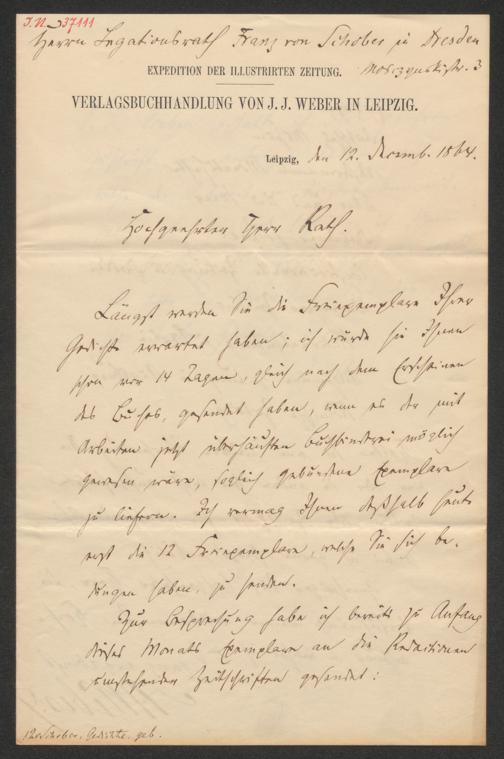 I.N. 37111
Herrn Legationsrath Franz von Schober in Dresden
EXPEDITION DER ILLUSTRIRTEN ZEITUNG. Moszzynskistr. 3
VERLAGSBUCHHANDLUNG VON J. J. WEBER IN LEIPZIG.
Leipzig, den 12. Decemb. 1864.
Hochgeehrter Herr Rath.
Längst werden Sie die Freiexemplare Ihrer
Gedichte erwartet haben; ich würde sie Ihnen
schon vor 14 Tagen, gleich nach dem Erscheinen
des Buches, gesendet haben, wenn es der mit
Arbeiten jetzt überhäuften Buchbinderei möglich
gewesen wäre, sogleich gebundene Exemplare
zu liefern. Ich vermag Ihnen deßhalb heute
erst die 12 Freiexemplare, welche Sie sich be-
dungen haben, zu senden.
Zur Besprechung habe ich bereits zu Anfang
dieses Monats Exemplare an die Redactionen
umstehender Zeitschriften gesendet:
12 Schober, Gedichte, geb.